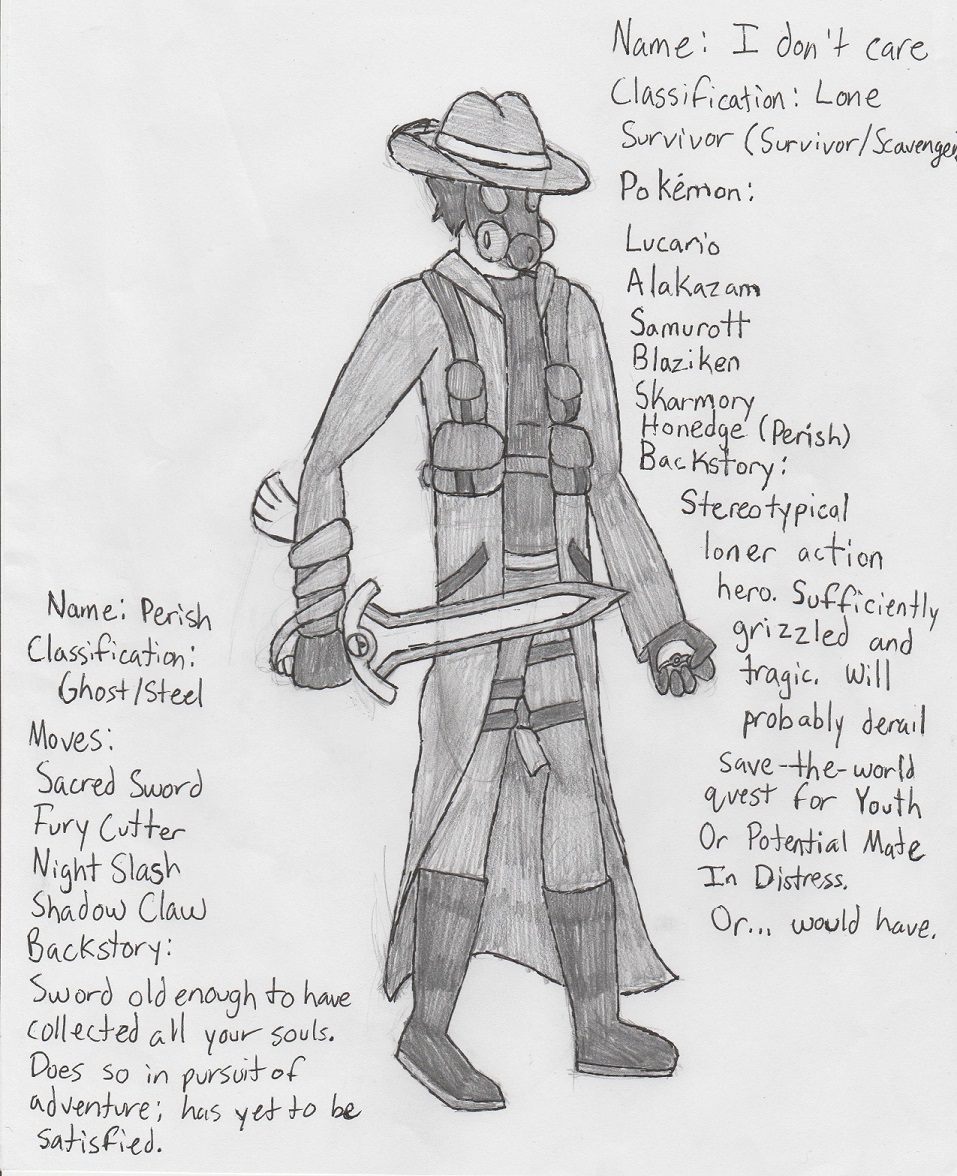 Name: I don't care
Classification: Lone
Survivor (Survivor/Scavenger
Pokémon:
Lucario
Alakazam
Samurott
Blaziken
Skarmory
Honedge (Perish)
Backstory:
Stereotypical
loner action
hero. Sufficiently
grizzled and
tragic. Will
probably derail
save-the-world
quest for Youth
Or Potential Mate
In Distress.
Or... would have.
Name: Perish
Classification:
Ghost/Steel
Moves:
Sacred Sword
Fury Cutter
Night Slash
Shadow Claw
Backstory:
Sword old enough to have
collected all your souls.
Does so in pursuit of
adventure; has yet to be
satisfied.